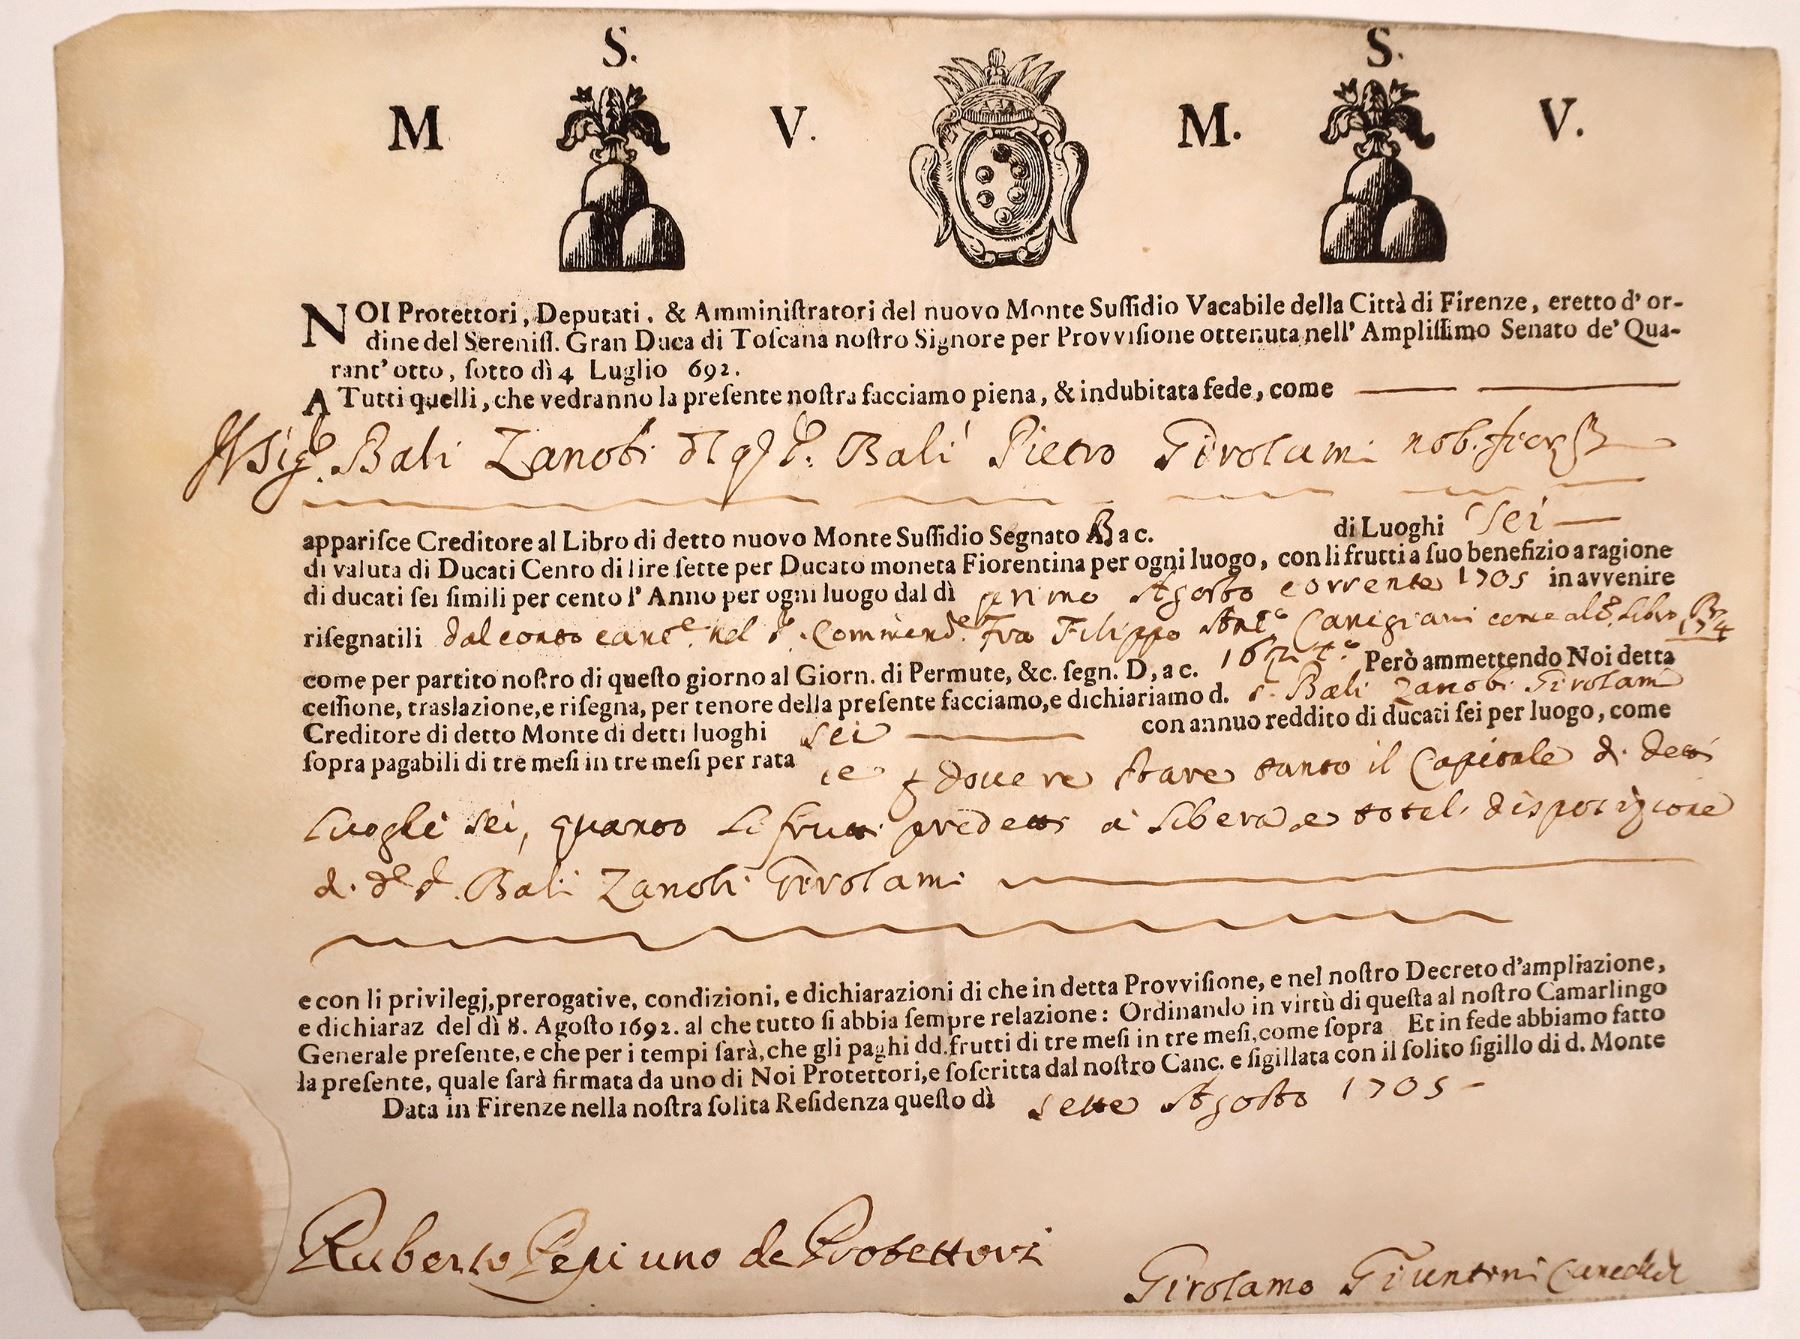 S. S.
M V. M. V.
NOI Protettori, Deputati, & Amminiſtratori del nuovo Monte Suſſidio Vacabile della Città di Firenze, eretto d' or-
dine del Sereniſſ. Gran Duca di Toſcana noſtro Signore per Provviſione ottenuta nell' Ampliſſimo Senato de' Qua-
rant' otto, ſotto dì 4 Luglio 692.
A Tutti quelli, che vedranno la preſente noſtra facciamo piena, & indubitata fede, come
Sig.e Bali Zanobi Bali Pietro Girolami nob.
appariſce Creditore al Libro di detto nuovo Monte Suſſidio Segnato B a c. di Luoghi Sei
di valuta di Ducati Cento di lire ſette per Ducato moneta Fiorentina per ogni luogo, con li frutti a ſuo benefizio a ragione
di ducati ſei ſimili per cento l' Anno per ogni luogo dal dì primo Agosto corrente 1705 in avvenire
riſegnatili dal conto nel Fra Filippo Ant.o Canigiani Libro B 174
come per partito noſtro di queſto giorno al Giorn. di Permute, &c. ſegn. D, a c. Però ammettendo Noi detta
ceſſione, traslazione, e riſegna, per tenore della preſente facciamo, e dichiariamo d. s. Bali Zanobi Girolami
Creditore di detto Monte di detti luoghi sei con annuo reddito di ducati ſei per luogo, come
ſopra pagabili di tre meſi in tre meſi per rata dovere stare tanto il Capitale d. detti
luoghi sei, quanto li frutti predetti à libera, e total disposizione
d. d.o s. Bali Zanobi Girolami
e con li privilegj, prerogative, condizioni, e dichiarazioni di che in detta Provviſione, e nel noſtro Decreto d'ampliazione,
e dichiaraz del dì 8. Agoſto 1692. al che tutto ſi abbia ſempre relazione: Ordinando in virtù di queſta al noſtro Camarlingo
Generale preſente, e che per i tempi ſarà, che gli paghi dd. frutti di tre meſi in tre meſi, come ſopra Et in fede abbiamo fatto
la preſente, quale ſarà firmata da uno di Noi Protettori, e ſoſcritta dal noſtro Canc. e ſigillata con il ſolito ſigillo di d. Monte
Data in Firenze nella noſtra ſolita Reſidenza queſto dì sette Agosto 1705
Ruberto Pepi uno de Protettori
Girolamo Giuntini